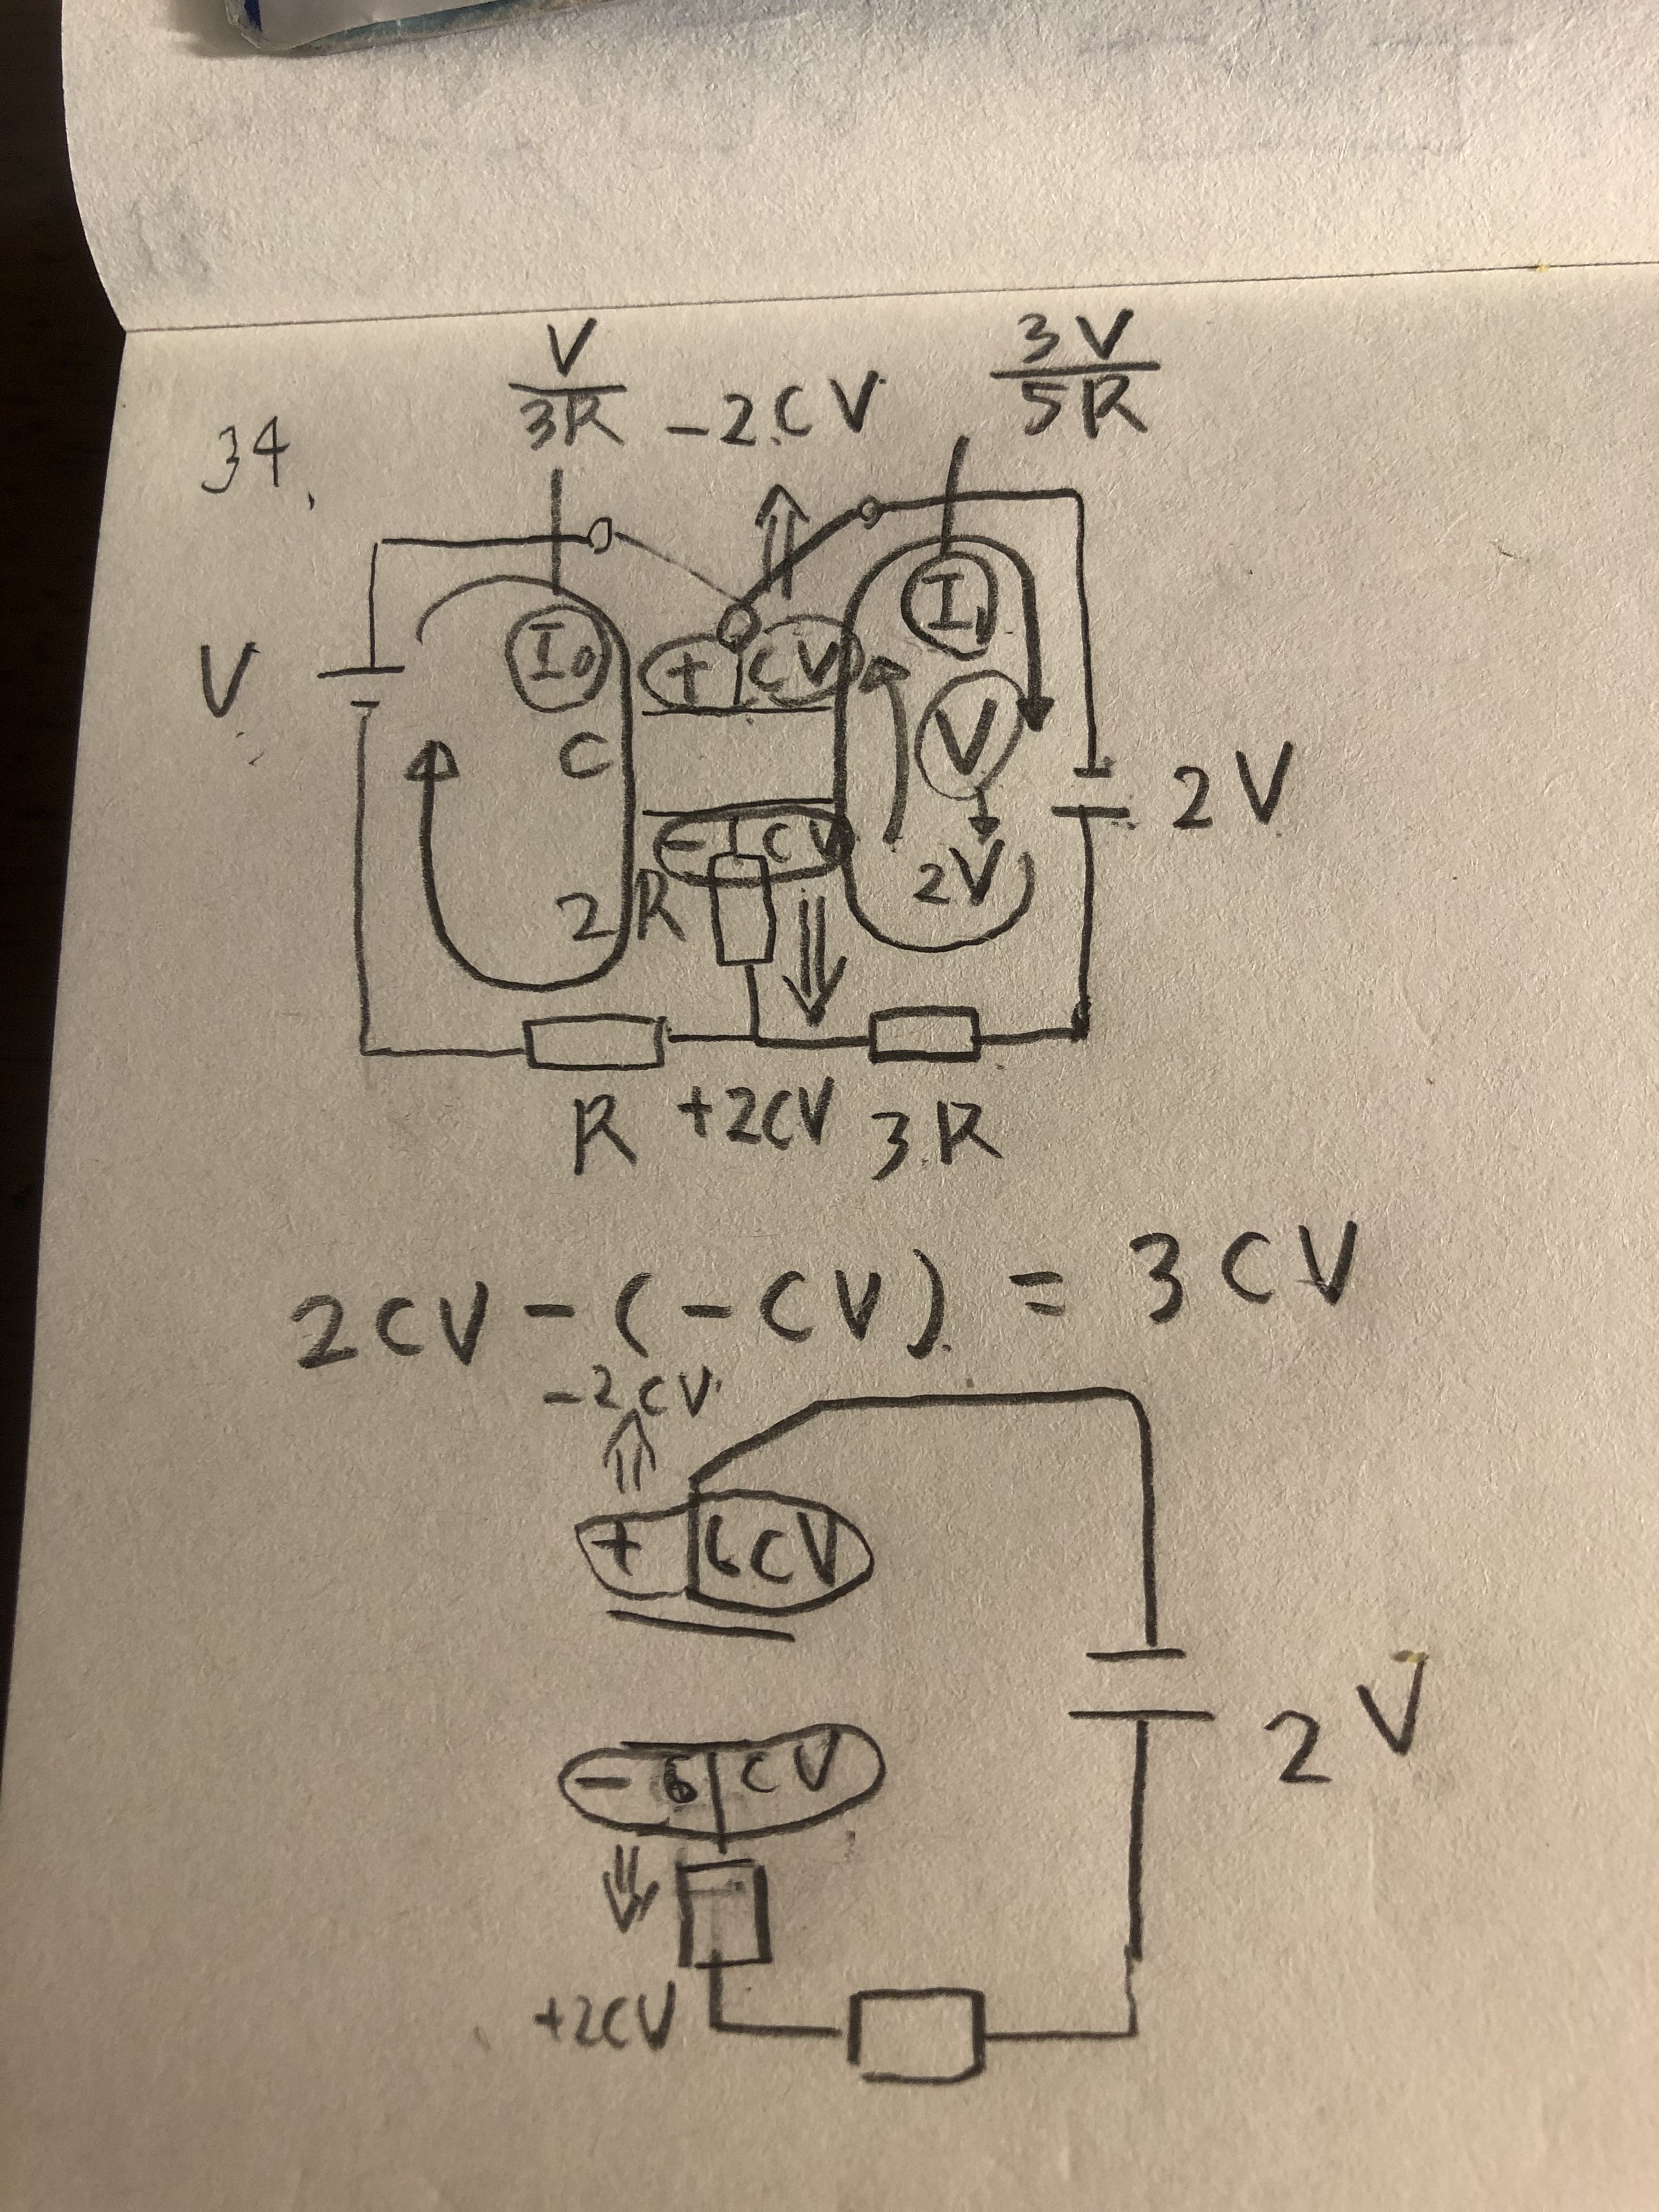 34.
V/3R
-2CV
3V/5R
I₀
+ CV
I₁
V
C
V
2V
- CV
2V
2R
R
+2CV
3R
2CV-(-CV) = 3CV
-2CV
+ 6CV
2V
- 6CV
+2CV